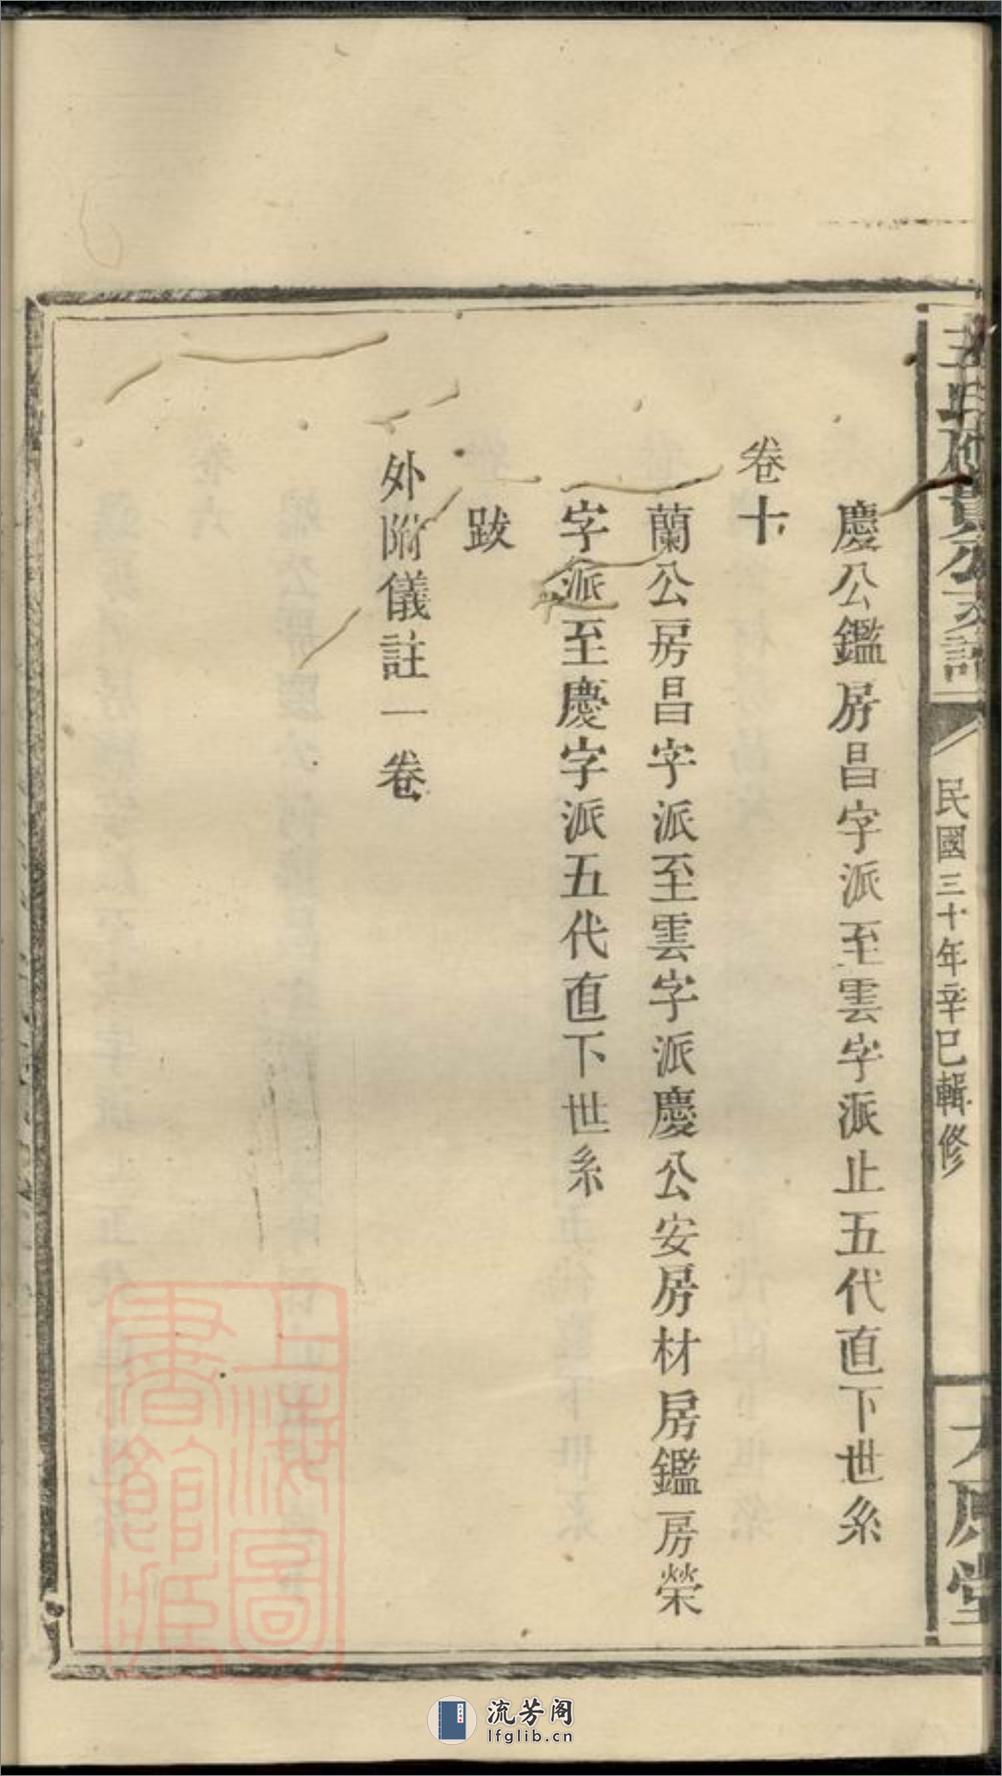 王氏應貴公支譜
民國三十年辛巳輯修
太原堂
慶公鑑房昌字派至雲字派止五代直下世系
卷十
蘭公房昌字派至雲字派慶公安房材房鑑房榮
字派至慶字派五代直下世系
跋
外附儀註一卷
上海圖
書館藏
流芳阁
lfglib.cn